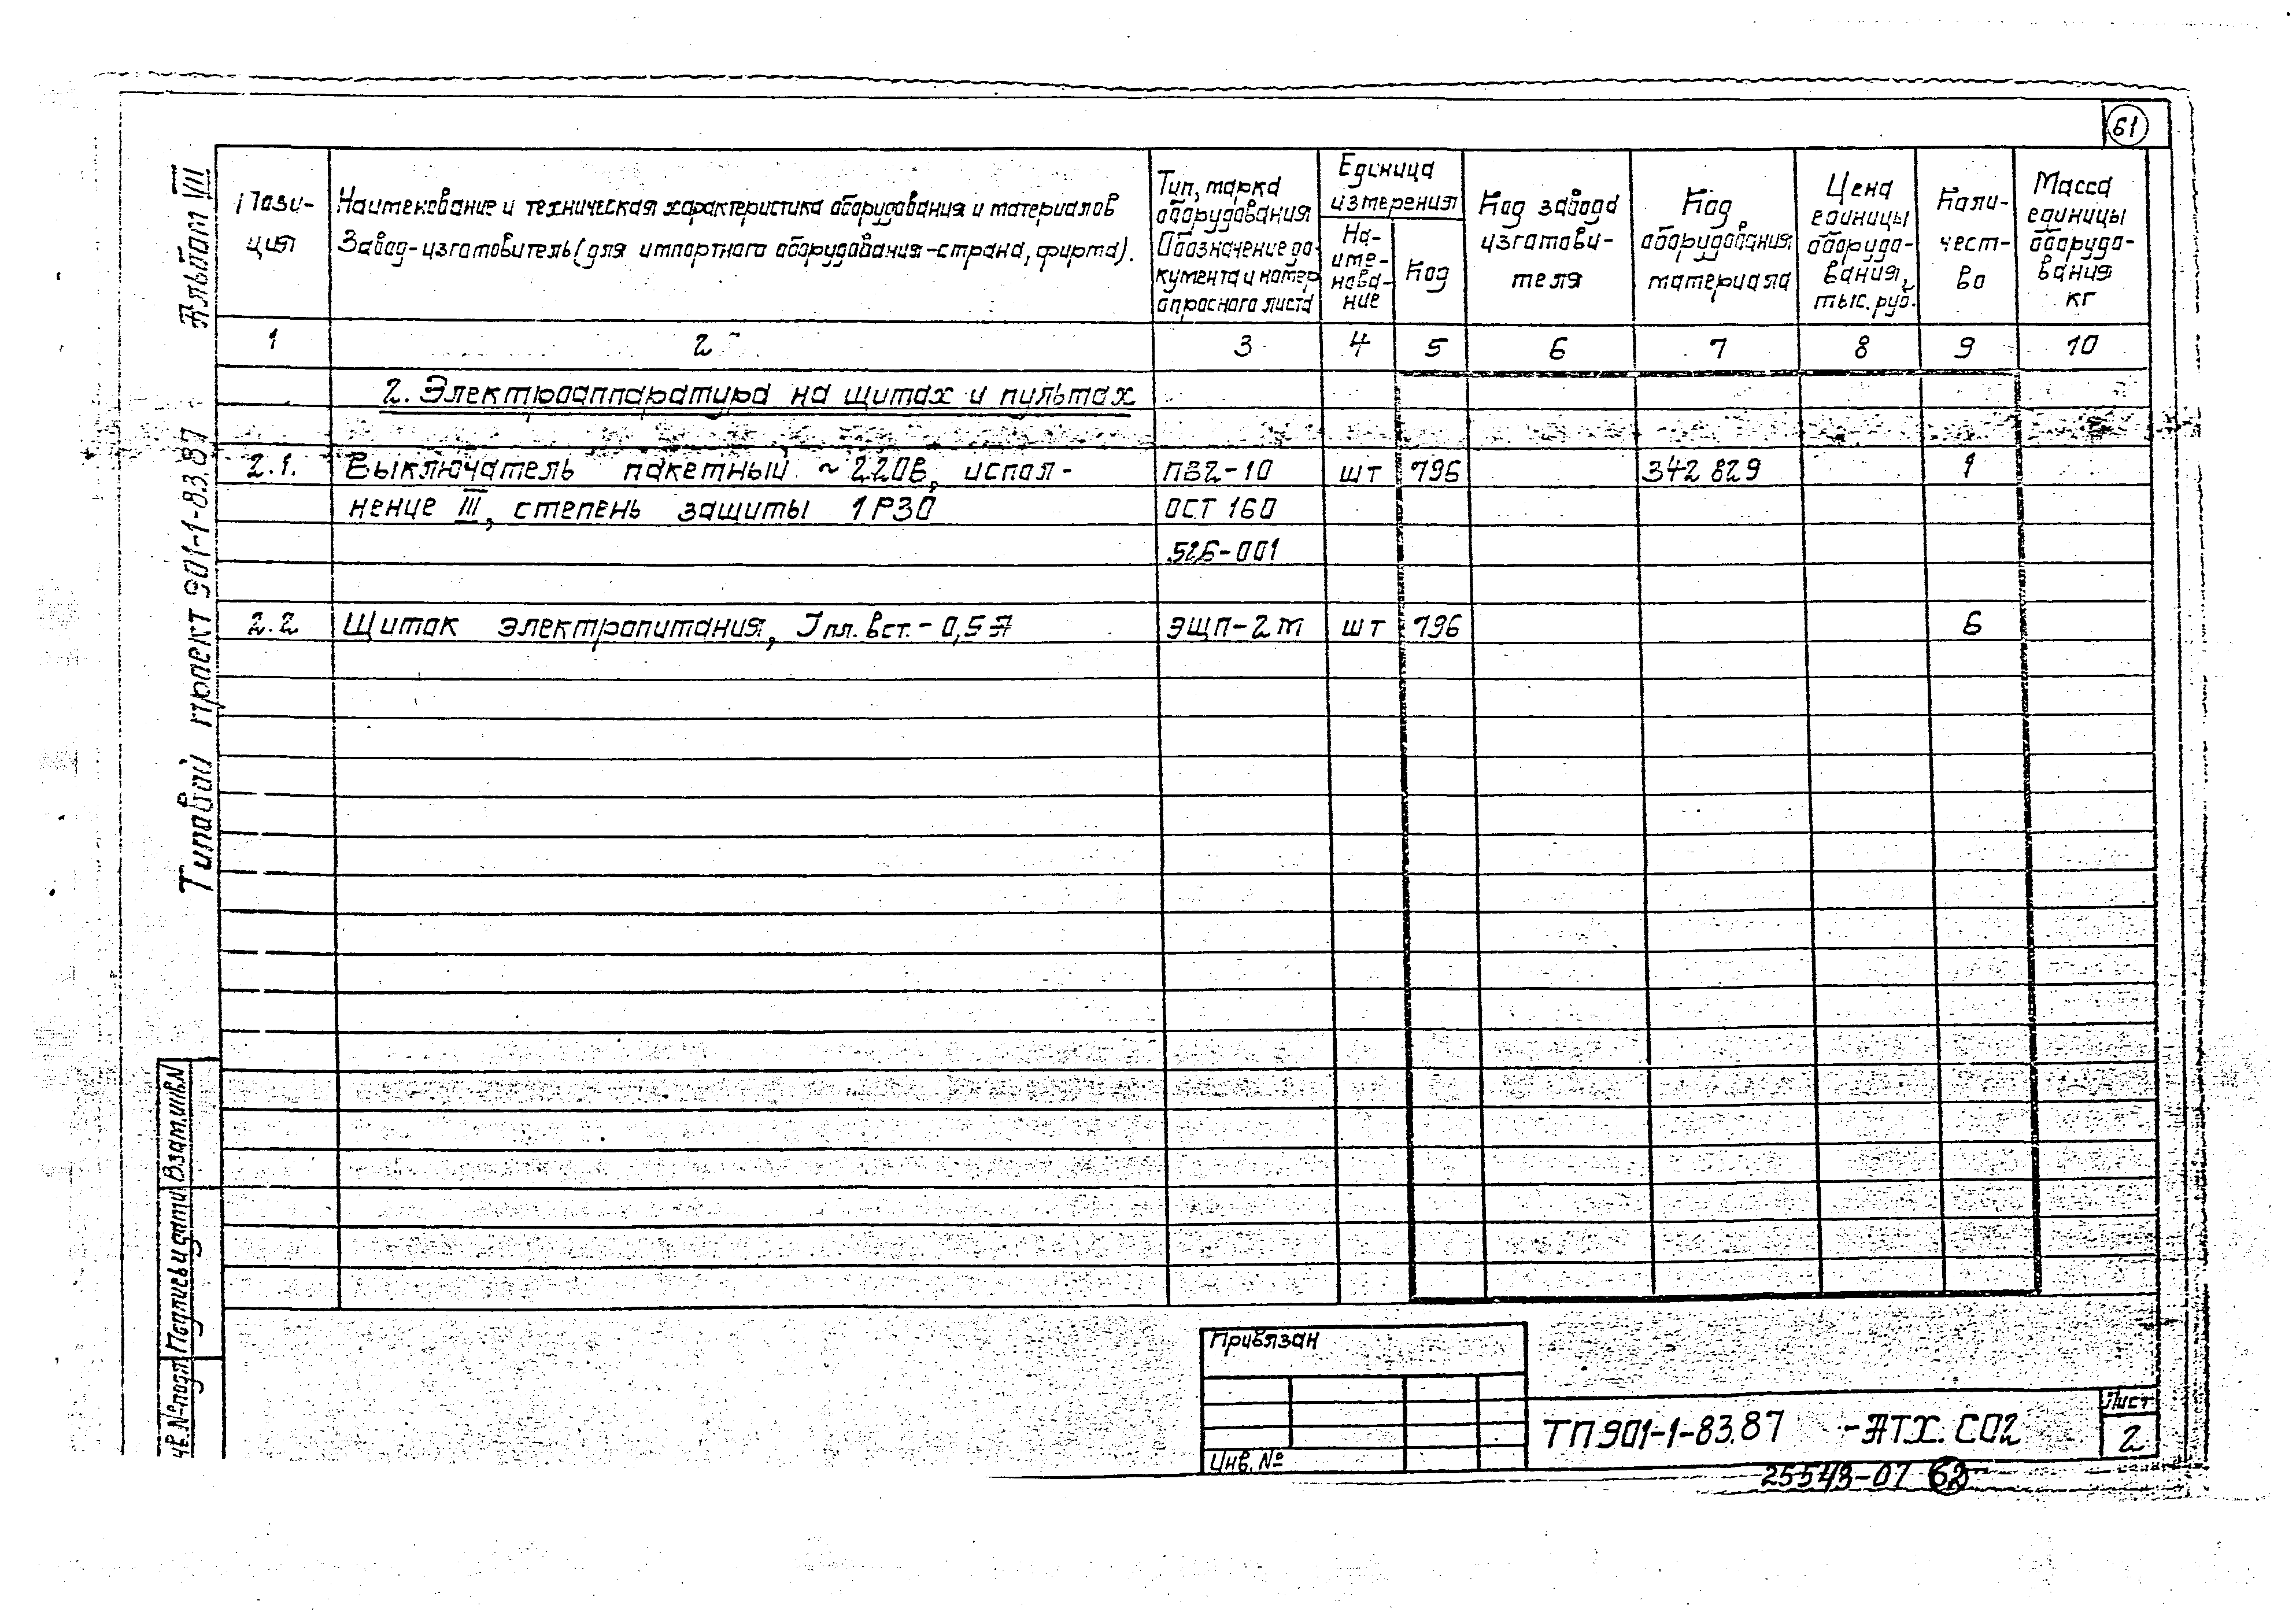 61
Альбом VII
Типовой проект 901-1-83.87
Пози-
ция
Наименование и техническая характеристика оборудования и материалов
Завод-изготовитель (для импортного оборудования-страна, фирма).
Тип, марка
оборудования
Обозначение до-
кумента и номер
опросного листа
Единица
измерения
На-
име-
нова-
ние
Код
Код завода
изготови-
теля
Код
оборудования
материала
Цена
единицы
оборудо-
вания,
тыс. руб.
Коли-
чест-
во
Масса
единицы
оборудо-
вания
кг
1 2 3 4 5 6 7 8 9 10
2. Электроаппаратура на щитах и пультах
2.1. Выключатель пакетный ~ 220В, испол- ПВ2-10 шт 796 342 829 1
нение III, степень защиты 1Р30 ОСТ 160
.526-001
2.2 Щиток электропитания, Iпл. вст. - 0,5А ЭЩП-2м шт 796 6
Взам.инв.N
Подпись и дата
№подл
Привязан
Инв. №
ТП 901-1-83.87 -АТХ. СО2
Лист
2
25543-07 62